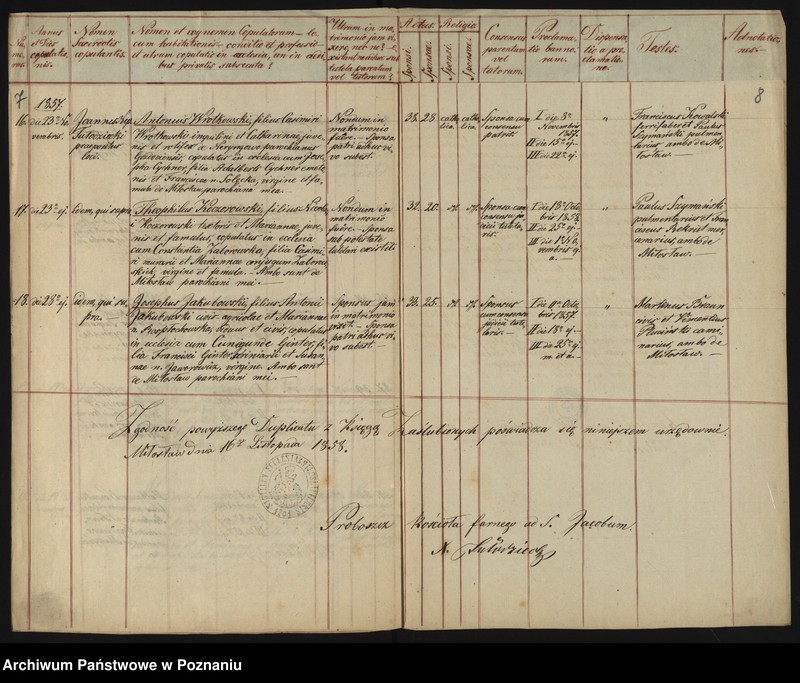 Nu-
me-
rus.
Annus
et Dies
copulatio-
nis.
Nomen
Sacerdotis
copulantis.
Nomen et cognomen Copulatorum — lo-
cum habitationis — conditio et professio
et utrum copulatio in ecclesia, an in aedi-
bus privatis subsecuta?
Utrum in ma-
trimonio jam vi-
xere, nec ne?
tutela parentum
vel tutorum?
Aetas.
Sponsi.
Sponsae.
Religio.
Sponsi.
Sponsae.
Consensus
parentum
vel
tutorum.
Proclama-
tio banno-
rum.
Dispensa-
tio a pro-
clamatio-
ne.
Testes.
Adnotatio-
nes.
7
8
1857.
16.
die 23tia No-
vembris.
Joannes
praepositus
loci.
Antonius Wrotkowski, filius Casimiri
Wrotkowski et Catharinae, juve-
nis et copulatus in ecclesia cum Jose-
pha Cychner, filia Adalberti Cychner
nis et Franciscae n. virgine et fa-
mula de Miłosław parochiana mea.
Nondum in
matrimonio
fuere. — Sponsa
patri adhuc vi-
vo subest.
38.
28.
catho-
lica.
catho-
lica.
Sponsa cum
consensu
patris.
I die 8va
Novembris
1857.
II die 15ta ej.
III die 22da ej.
"
Franciscus Kowalski
ferrifaber et Paulus
Szymański pulmen-
tarius ambo de Mi-
łosław.
17.
die 23tia ej.
idem, qui supra.
Theophilus Koczorowski, filius Nicolai
Koczorowski textoris et Mariannae, juve-
nis et famulus, copulatus in ecclesia
cum Constantia Zaborowska, filia Casimi-
ri murarii et Mariannae conjugum Zaborow-
skich, virgine et famula. — Ambo sunt de
Miłosław parochiani mei.
Nondum in
matrimonio
fuere. — Sponsa
sub potestate
tutelari existit.
32.
20.
Sponsa cum
consensu ju-
dicii tute-
laris.
I die 18va Octo-
bris
II die 25ta ej.
III die 1ma No-
vembris ej.
a.
"
Paulus Szymański
pulmentarius et Fran-
ciscus
cenarius ambo de
Miłosław.
18.
die 28va ej.
idem, qui su-
pra.
Josephus Jakubowski, filius Antonii
Jakubowski civis agricolae et Mariannae
n. viduus et civis, copulatus
in ecclesia cum Cunegunde Ginter, fi-
lia Francisci Ginter scriniarii et Susan-
nae n. Jaworowicz, virgine. Ambo sunt
de Miłosław parochiani mei.
Sponsus jam
in matrimonio
vixit. — Sponsa
patri adhuc vi-
vo subest.
33.
25.
Sponsus
cum consensu
judicii tute-
laris.
I die 11ma Octo-
bris 1857.
II die 18va ej.
III die 25ta ej.
m. et a.
"
Martinus Braun
civis et Vincentius
cami-
narius, ambo de
Miłosław.
Zgodność powyższego Duplikatu z Księgą Zaślubionych poświadcza się niniejszem urzędownie.
Miłosław dnia 16go Listopada 1858.
Proboszcz Kościoła farnego ad S. Jacobum.
Archiwum Państwowe w Poznaniu